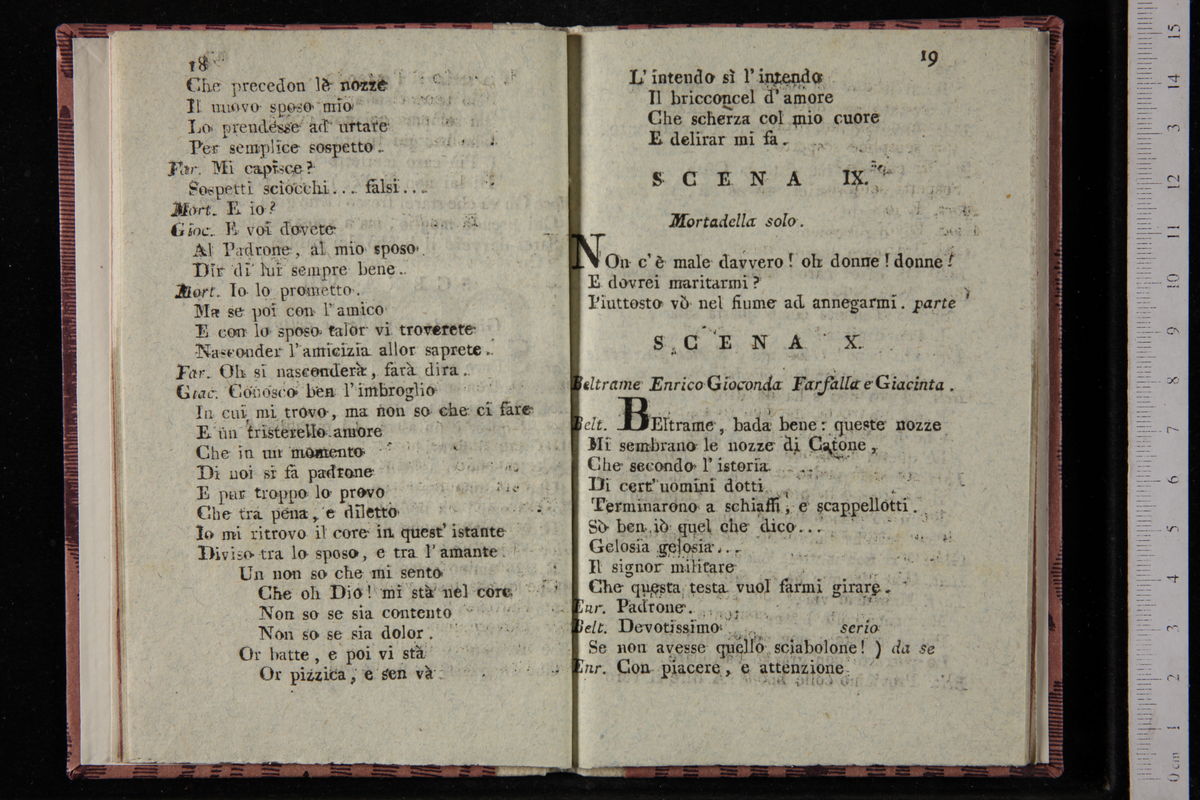 18
Che precedon lè nozze
Il nuovo sposo mio
Lo prendesse ad urtare
Per semplice sospetto.
Far. Mi capisce?
Sospetti sciocchi... falsi...
Mort. E io?
Gioc. E voi dovete
Al Padrone, al mio sposo
Dir di lui sempre bene.
Mort. Io lo prometto.
Ma se poi con l'amico
E con lo sposo talor vi troverete
Nasconder l'amicizia allor saprete.
Far. Oh si nasconderà, farà dira.
Giac. Conosco ben l'imbroglio
In cui mi trovo, ma non so che ci fare
E un tristerello amore
Che in un momento
Di noi si fa padrone
E pur troppo lo provo
Che tra pena, e diletto
Io mi ritrovo il core in quest' istante
Diviso tra lo sposo, e tra l'amante
Un non so che mi sento
Che oh Dio! mi stà nel core
Non so se sia contento
Non so se sia dolor.
Or batte, e poi vi stà
Or pizzica, e sen và
19
L'intendo sì l'intendo
Il bricconcel d'amore
Che scherza col mio cuore
E delirar mi fa.
SCENA IX.
Mortadella solo.
NOn c'è male davvero! oh donne! donne!
E dovrei maritarmi?
Piuttosto vò nel fiume ad annegarmi. parte
SCENA X.
Beltrame Enrico Gioconda Farfalla e Giacinta.
Belt. BEltrame, bada bene: queste nozze
Mi sembrano le nozze di Catone,
Che secondo l'istoria
Di cert' uomini dotti
Terminarono a schiaffi, e scappellotti.
Sò ben iò quel che dico...
Gelosia gelosia...
Il signor militare
Che questa testa vuol farmi girare.
Enr. Padrone.
Belt. Devotissimo serio
Se non avesse quello sciabolone! ) da se
Enr. Con piacere, e attenzione